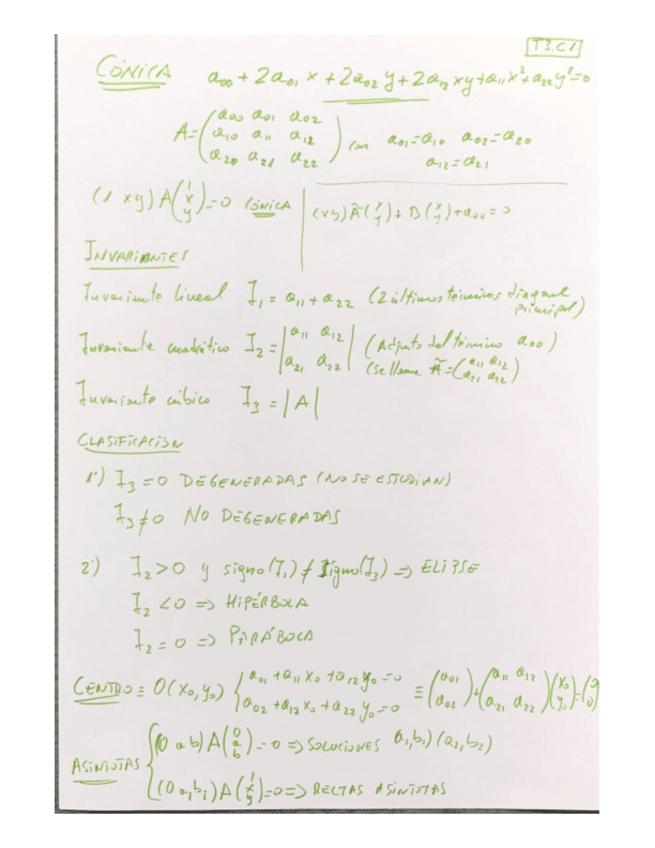 T3.C1
CÓNICA a₀₀ + 2a₀₁x + 2a₀₂y + 2a₁₂xy + a₁₁x² + a₂₂y² = 0
A = (a₀₀ a₀₁ a₀₂ / a₁₀ a₁₁ a₁₂ / a₂₀ a₂₁ a₂₂) con a₀₁=a₁₀ a₀₂=a₂₀
a₁₂=a₂₁
(1 x y) A (1 / x / y) = 0 CÓNICA | (x y) Ã (x / y) + B (x / y) + a₀₀ = 0
INVARIANTES
Invariante lineal I₁ = a₁₁ + a₂₂ (2 últimos términos diagonal
principal)
Invariante cuadrático I₂ = |a₁₁ a₁₂ / a₂₁ a₂₂| (Adjunto del término a₀₀)
(se llama Ã = (a₁₁ a₁₂ / a₂₁ a₂₂)
Invariante cúbico I₃ = |A|
CLASIFICACIÓN
1º) I₃ = 0 DEGENERADAS (NO SE ESTUDIAN)
I₃ ≠ 0 NO DEGENERADAS
2º) I₂ > 0 y signo(I₁) ≠ signo(I₃) ⇒ ELIPSE
I₂ < 0 ⇒ HIPÉRBOLA
I₂ = 0 ⇒ PARÁBOLA
CENTRO ≡ O(x₀,y₀) { a₀₁ + a₁₁x₀ + a₁₂y₀ = 0 / a₀₂ + a₁₂x₀ + a₂₂y₀ = 0 ≡ (a₀₁ / a₀₂) + (a₁₁ a₁₂ / a₂₁ a₂₂)(x₀ / y₀) = (0 / 0)
ASÍNTOTAS { (0 a b) A (0 / a / b) = 0 ⇒ SOLUCIONES (a₁,b₁) (a₂,b₂)
(0 aᵢ bᵢ) A (1 / x / y) = 0 ⇒ RECTAS ASÍNTOTAS